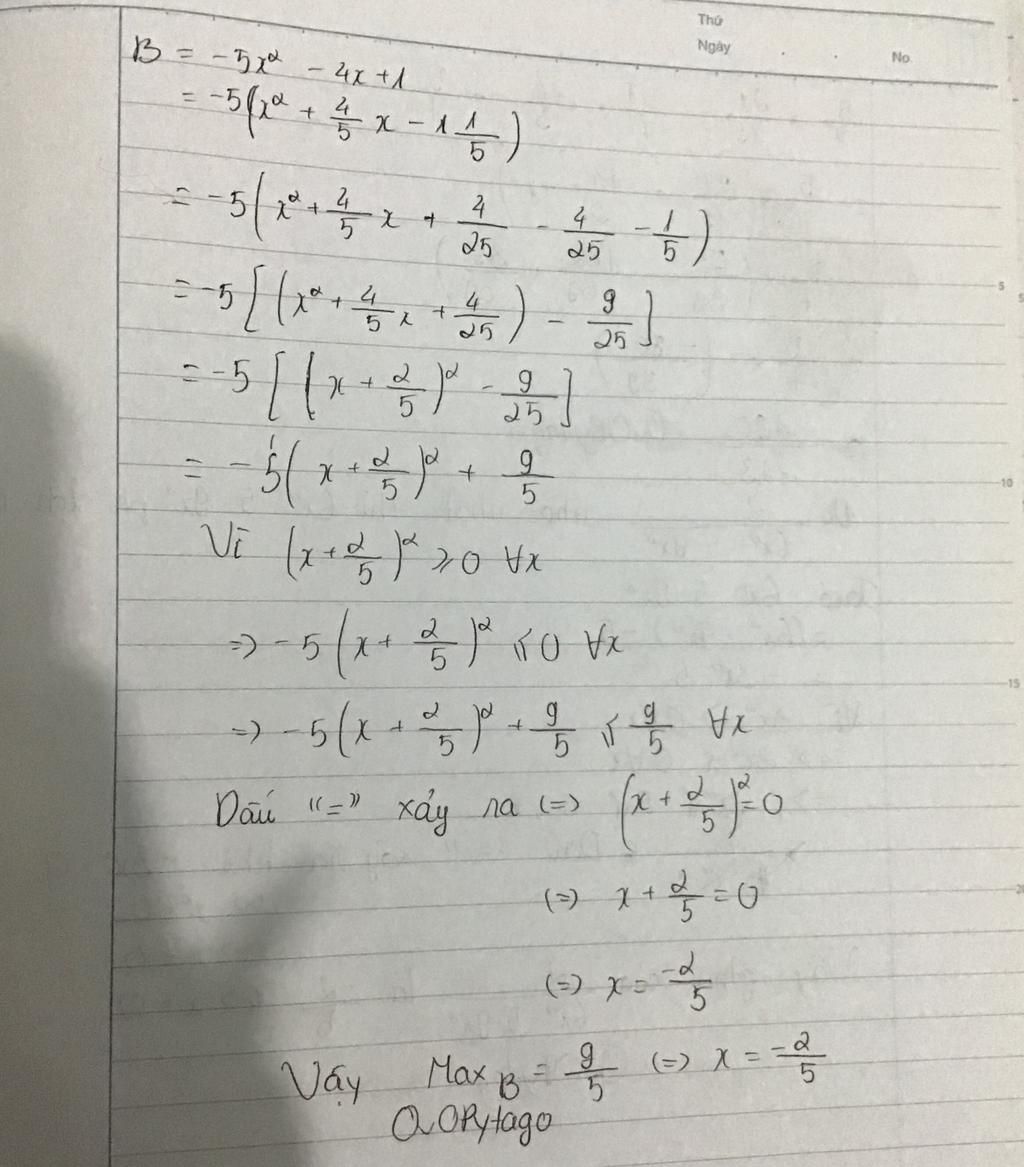 Thứ
Ngày
No
B = -5x² - 4x + 1
= -5(x² + 4/5 x - 1 1/5)
= -5(x² + 4/5 x + 4/25 - 4/25 - 1/5)
= -5[(x² + 4/5 x + 4/25) - 9/25]
5
= -5[(x + 2/5)² - 9/25]
= -5(x + 2/5)² + 9/5
10
Vì (x + 2/5)² ⩾ 0 ∀x
=> -5(x + 2/5)² ⩽ 0 ∀x
15
=> -5(x + 2/5)² + 9/5 ⩽ 9/5 ∀x
Dấu "=" xảy ra (=) (x + 2/5)² = 0
(=) x + 2/5 = 0
(=) x = -2/5
Vậy Max B = 9/5 (=) x = -2/5
OLOPytago